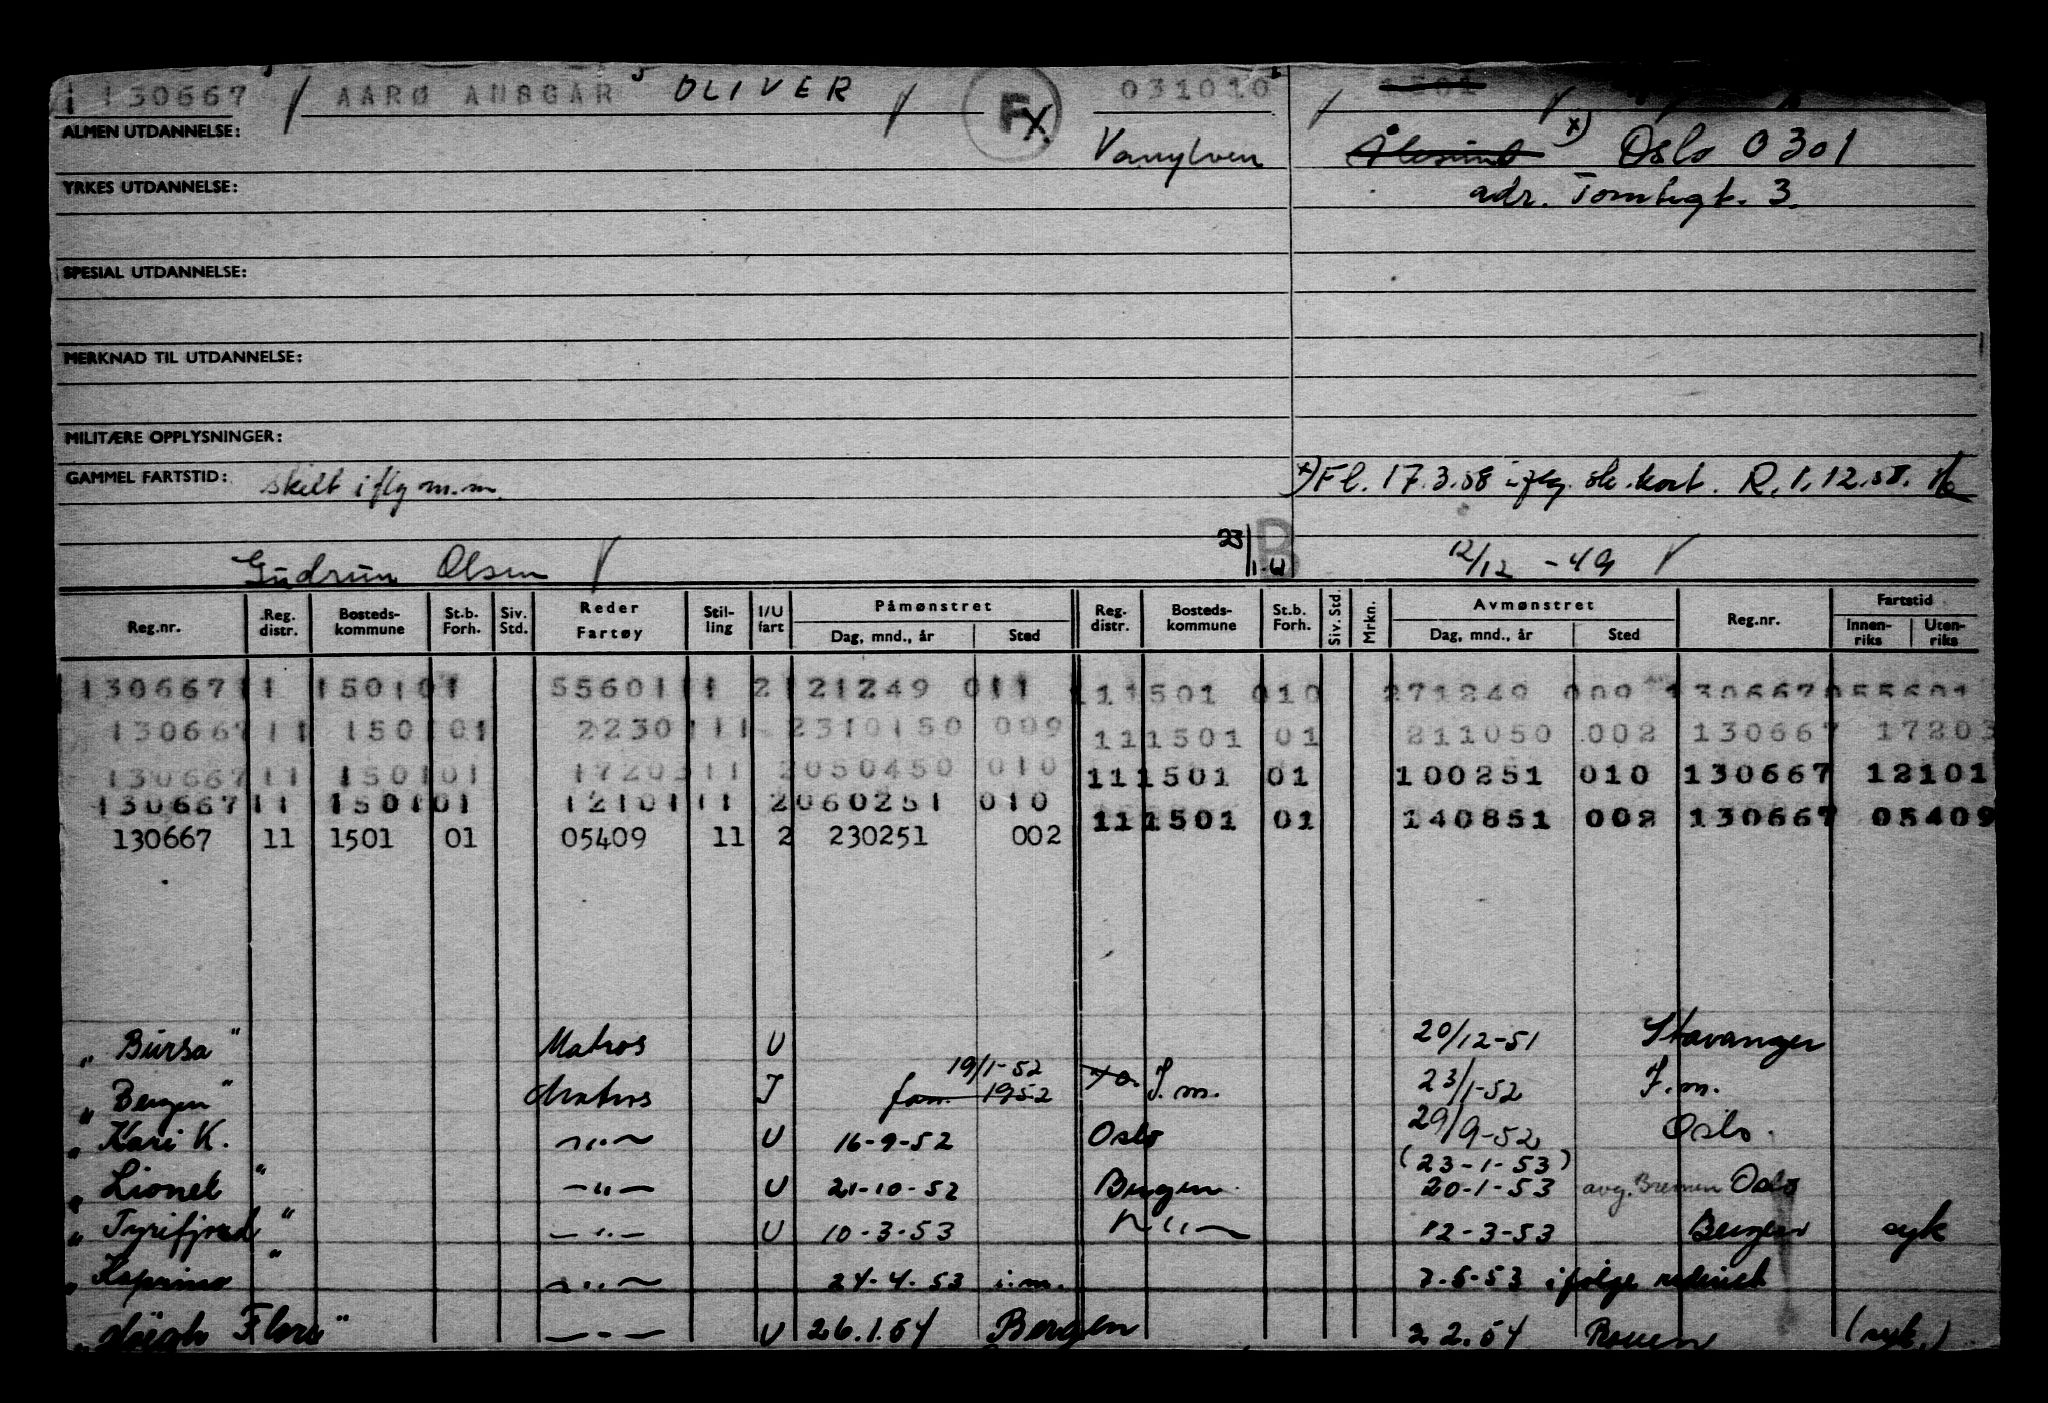 130667 AARØ ANSGAR OLIVER F x 031010 1501
ALMEN UTDANNELSE: Vanylven Ålesund x) Oslo 0301
YRKES UTDANNELSE: adr. Tomtegt. 3.
SPESIAL UTDANNELSE:
MERKNAD TIL UTDANNELSE:
MILITÆRE OPPLYSNINGER:
GAMMEL FARTSTID: skilt iflg m.m. x) Fl. 17.3.58 iflg. sk.kort. R. 1.12.58.
Gudrun Olsen 23/ B 12/12 -49
Reg.nr. Reg. distr. Bosteds-kommune St.b. Forh. Siv. Std. Reder Fartøy Stil-ling I/U fart Påmønstret Dag, mnd., år Sted Reg. distr. Bosteds-kommune St.b. Forh. Siv. Std. Mrkn. Avmønstret Dag, mnd., år Sted Reg.nr. Fartstid Innen-riks Uten-riks
130667 11 1501 01 55601 11 2 121249 011 11 1501 010 271249 009 130667 055601
130667 11 1501 01 22301 11 2310150 009 11 1501 01 211050 002 130667 17203
130667 11 1501 01 17203 11 2 050450 010 11 1501 01 100251 010 130667 12101
130667 11 1501 01 12101 11 2 060251 010 11 1501 01 140851 002 130667 05409
130667 11 1501 01 05409 11 2 230251 002
„ Bursa " Matros U 20/12-51 Stavanger
„ Bergen " Matros I 19/1-52 jan. 1952 I.m. 23/1-52 I.m.
„ Kari K. —„— U 16-9-52 Oslo 29/9-52 Oslo.
„ Lionel " —„— U 21-10-52 Bergen (23-1-53) 20-1-53 avg. Bremen Oslo
„ Tyrifjord " —„— U 10-3-53 —„— 12-3-53 Bergen syk
„ Kaprino " —„— 24-4-53 i.m. 7-5-53 ifølge rederiet
„ Høegh Flora" —„— U 26.1.54 Bergen 2 2.54 Rouen (syk.)